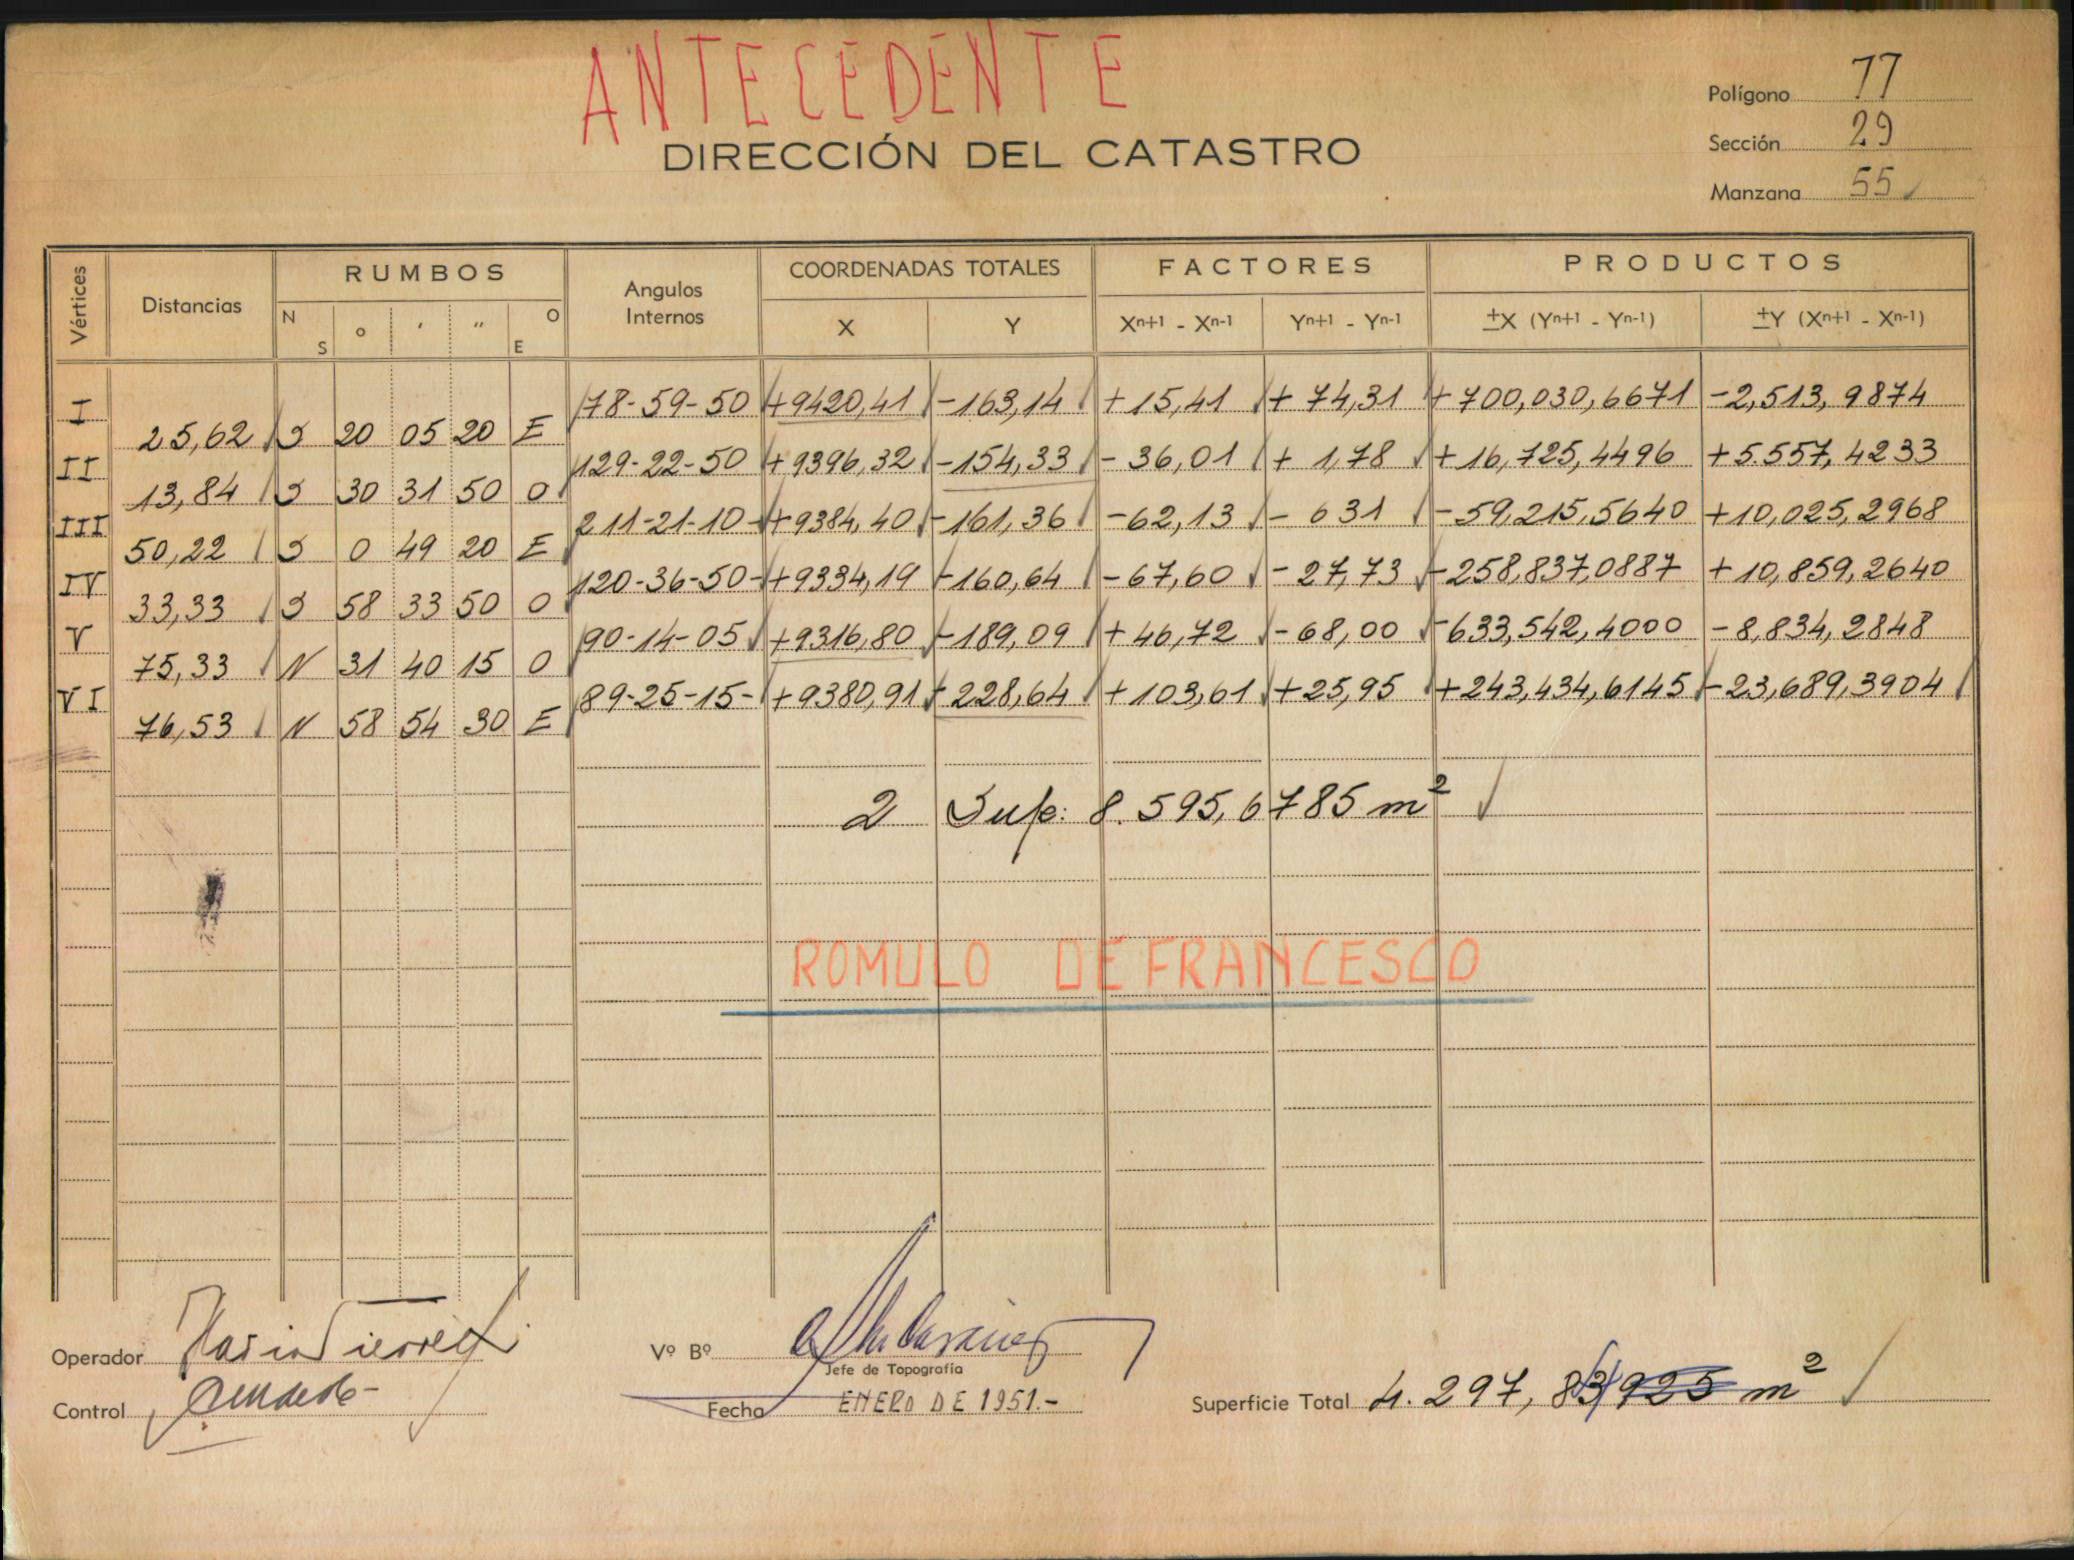 ANTECEDENTE
DIRECCIÓN DEL CATASTRO
Polígono 77
Sección 29
Manzana 55
Vértices Distancias RUMBOS Angulos Internos COORDENADAS TOTALES FACTORES PRODUCTOS
N S ° ' " O E X Y Xn+1 - Xn-1 Yn+1 - Yn-1 ±X (Yn+1 - Yn-1) ±Y (Xn+1 - Xn-1)
I 78-59-50 +9420,41 -163,14 +15,41 +74,31 +700,030,6671 -2,513,9874
25,62 S 20 05 20 E
II 129-22-50 +9396,32 -154,33 -36,01 +1,78 +16,725,4496 +5.557,4233
13,84 S 30 31 50 O
III 211-21-10- +9384,40 -161,36 -62,13 - 631 -59,215,5640 +10,025,2968
50,22 S 0 49 20 E
IV 120-36-50- +9334,19 -160,64 -67,60 -27,73 -258,837,0887 +10,859,2640
33,33 S 58 33 50 O
V 90-14-05 +9316,80 -189,09 +46,72 -68,00 -633,542,4000 -8,834,2848
75,33 N 31 40 15 O
VI 89-25-15- +9380,91 -228,64 +103,61 +25,95 +243,434,6145 -23,689,3904
76,53 N 58 54 30 E
2 Sup: 8.595,6785 m²
ROMULO DE FRANCESCO
Operador
Vº Bº
Jefe de Topografía
Control
Fecha ENERO DE 1951.-
Superficie Total 4.297, 83 925 m²